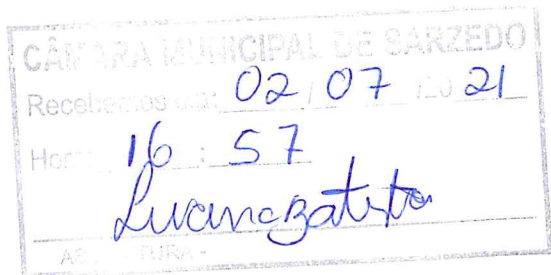 CÂMARA MUNICIPAL DE SARZEDO
Recebemos dia: 02 / 07 / 20 21
Hora: 16 : 57
Luciana Batista
ASSINATURA -